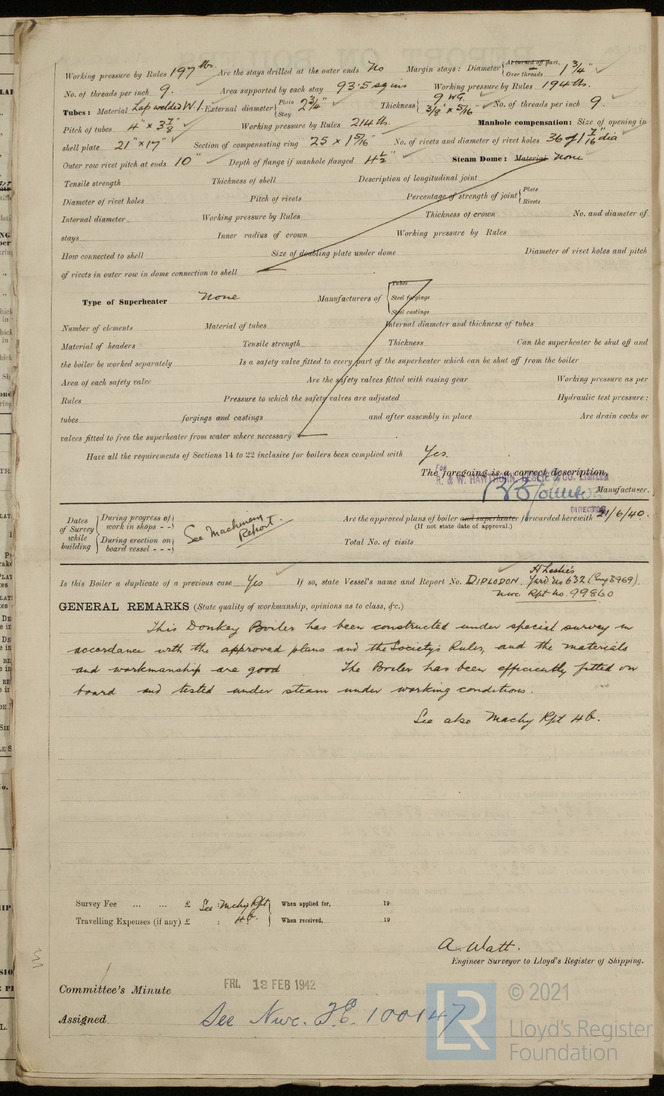 Working pressure by Rules 197 lbs Are the stays drilled at the outer ends No Margin stays: Diameter { At turned off part, or Over threads 1 3/4" ✓
No. of threads per inch 9. Area supported by each stay 93.5 sq ins Working pressure by Rules 194 lbs.
Tubes: Material Lap welded W.I. External diameter { Plain Stay 2 3/4" Thickness { 9 WG 3/8" x 5/16" No. of threads per inch 9.
Pitch of tubes 4" x 3 7/8" Working pressure by Rules 214 lbs. Manhole compensation: Size of opening in
shell plate 21" x 17" Section of compensating ring 25 x 1 5/16" No. of rivets and diameter of rivet holes 36 of 1 7/16" dia
Outer row rivet pitch at ends 10" Depth of flange if manhole flanged 4 1/2" Steam Dome: Material None
Tensile strength Thickness of shell Description of longitudinal joint
Diameter of rivet holes Pitch of rivets Percentage of strength of joint { Plate Rivets
Internal diameter Working pressure by Rules Thickness of crown No. and diameter of
stays Inner radius of crown Working pressure by Rules
How connected to shell Size of doubling plate under dome Diameter of rivet holes and pitch
of rivets in outer row in dome connection to shell
Type of Superheater None Manufacturers of { Tubes Steel forgings Steel castings
Number of elements Material of tubes Internal diameter and thickness of tubes
Material of headers Tensile strength Thickness Can the superheater be shut off and
the boiler be worked separately Is a safety valve fitted to every part of the superheater which can be shut off from the boiler
Area of each safety valve Are the safety valves fitted with easing gear Working pressure as per
Rules Pressure to which the safety valves are adjusted Hydraulic test pressure:
tubes forgings and castings and after assembly in place Are drain cocks or
valves fitted to free the superheater from water where necessary
Have all the requirements of Sections 14 to 22 inclusive for boilers been complied with Yes.
The foregoing is a correct description,
FOR R. & W. HAWTHORN, LESLIE & CO. LIMITED
Manufacturer.
DIRECTOR
Dates of Survey while building { During progress of work in shops - - During erection on board vessel - - - } See Machinery Report. Are the approved plans of boiler and superheater forwarded herewith 21/6/40.
(If not state date of approval.)
Total No. of visits
Is this Boiler a duplicate of a previous case Yes If so, state Vessel's name and Report No. DIPLODON. H Leslie's Yard No 632
Nwc Rpt No. 99860
GENERAL REMARKS (State quality of workmanship, opinions as to class, &c.)
This Donkey Boiler has been constructed under special survey in
accordance with the approved plans and the Society's Rules, and the materials
and workmanship are good The Boiler has been efficiently fitted on
board and tested under steam under working conditions.
See also Machy Rpt 4b.
Survey Fee ... ... £ See Mchy Rpt 4b. When applied for, 19
Travelling Expenses (if any) £ : When received, 19
A. Watt.
Engineer Surveyor to Lloyd's Register of Shipping.
Committee's Minute FRI. 13 FEB 1942
Assigned See Nwc. F.E. 100147
LR © 2021
Lloyd's Register
Foundation